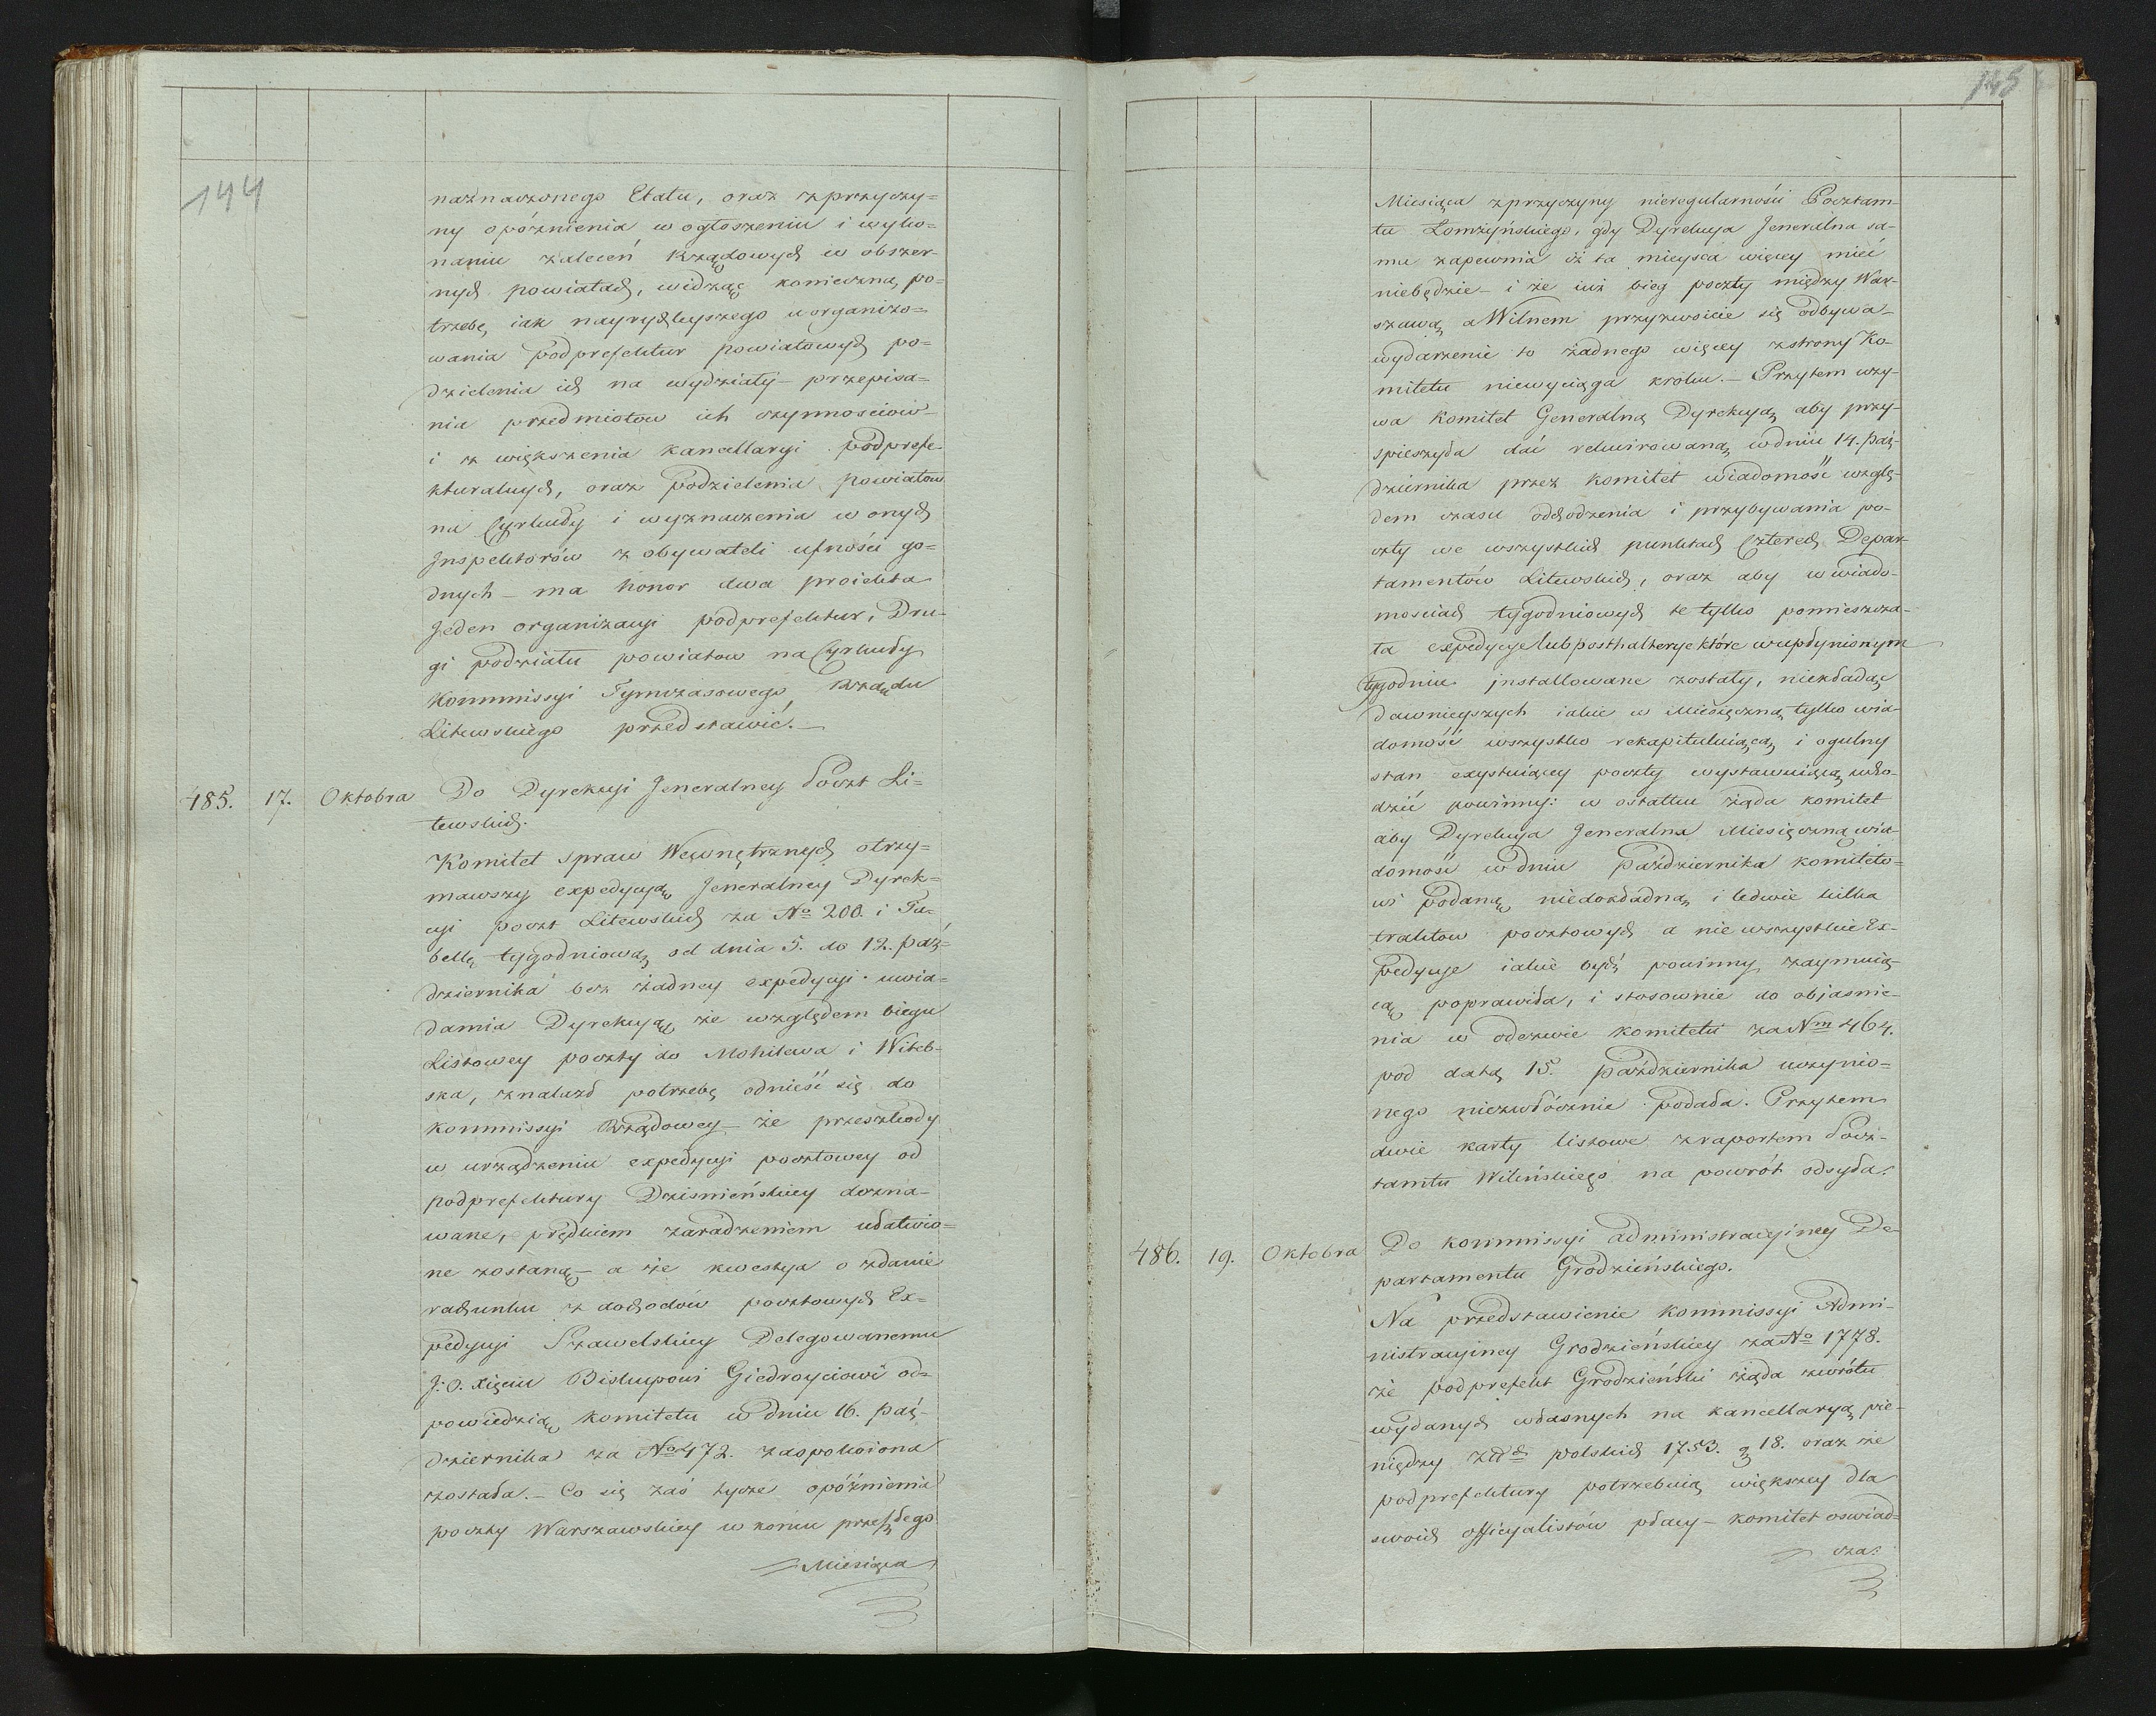 144
naznaczonego Etatu, oraz zprzyczy=
ny opóznienia w ogłoszeniu i wyko=
naniu zaleceń Rządowych w obszer=
nych powiatach, widząc konieczną po=
trzebę iak nayrychleyszego uorganizo=
wania podprefektur powiatowych po=
dzielenia ich na wydziały – przepisa=
nia przedmiotow ich czynnosciow –
i zwiększenia kancellaryi podprefe=
kturalnych, oraz podzielenia powiatow
na Cyrkuły i wyznaczenia w onych
Inspektorów z obywateli ufności go=
dnych – ma honor dwa proiekta
Jeden organizacyi podprefektur, Dru=
gi podziału powiatow na Cyrkuły
Kommissyi Tymczasowego Rządu
Litewskiego przedstawić. –
485. 17. Oktobra Do Dyrekcyi Jeneralney Poczt Li=
tewskich.
Komitet Spraw Wewnętrznych otrzy=
mawszy expedycyą Jeneralney Dyrek=
cyi poczt Litewskich za No 200. i Ta=
bellę tygodniową od dnia 5. do 12. paź=
dziernika bez żadney expedycyi. uwia=
damia Dyrekcyą że względem biegu
Listowey poczty do Mohilewa i Witeb=
ska, znalazł potrzebę odnieść się do
kommissyi Rządowey – że przeszkody
w urządzeniu expedycyi pocztowey od
podprefektury Dzisnieńskiey dozna=
wane, prędkiem zaradzeniem ułatwio=
ne zostaną – a że kwestya o zdanie
rachunku z dochodów pocztowych Ex=
pedycyi Szawelskiey Delegowanemu
J: O. Xięciu Biskupowi Giedroyciowi od=
powiedzią komitetu w dniu 16. paź=
dziernika za No 472. zaspokoiona
została. – Co się zaś tycze opóźnienia
poczty Warszawskiey w koncu przeszłego
Miesiąca
145
Miesiąca zprzyczyny nieregularności Pocztam=
tu Łomżyńskiego, gdy Dyrekcya Jeneralna sa=
ma zapewnia iż ta mieysca więcey mieć
niebędzie – i że iuż bieg poczty między War=
szawą a Wilnem przyzwoicie się odbywa –
wydarzenie to żadnego więcey zstrony Ko=
mitetu niewyciąga kroku. – Przytem wzy=
wa Komitet Generalną Dyrekcyą aby przy=
spieszyła dać rekwirowaną wdniu 14. paź=
dziernika przez Komitet wiadomość wzglę=
dem czasu odchodzenia i przybywania po=
czty we wszystkich punktach Czterech Depar=
tamentów Litewskich, oraz aby w wiado=
mosciach tygodniowych te tylko pomieszcza=
ła expedycye lub posthalterye które w upłynionym
tygodniu installowane zostały, niekładąc
dawnieyszych iakie w Miesięczną tylko wia=
domość wszystko rekapituluiącą i ogulny
stan exystuiącey poczty wystawuiącą wcho=
dzić powinny: w ostatku żąda komitet
aby Dyrekcya Jeneralna Miesięczną wia=
domość w dniu Października komiteto=
wi podaną niedokładną i ledwie kilka
traktow pocztowych a nie wszystkie Ex=
pedycye iakie być powinny zaymuią=
cą poprawiła, i stosownie do objasnie=
nia w odezwie komitetu za Nm 464.
pod datą 15. Października uczynio=
nego niezwłócznie podała. Przytem
dwie karty listowe zraportem Pocz=
tamtu Wileńskiego na powrót odsyła.
486. 19. Oktobra Do kommissyi administracyiney De=
partamentu Grodzieńskiego.
Na przedstawienie kommissyi Admi=
nistracyiney Grodzieńskiey za No 1778.
że podprefekt Grodzieński żąda zwrótu
wydanych własnych na kancellaryą pie=
niędzy polskich 1753. g 18. oraz że
podprefektury potrzebuią większey dla
swoich officyalistów płacy – komitet oswiad=
cza: